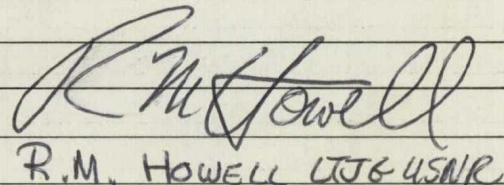 R M Howell
R.M. HOWELL LTJG USNR